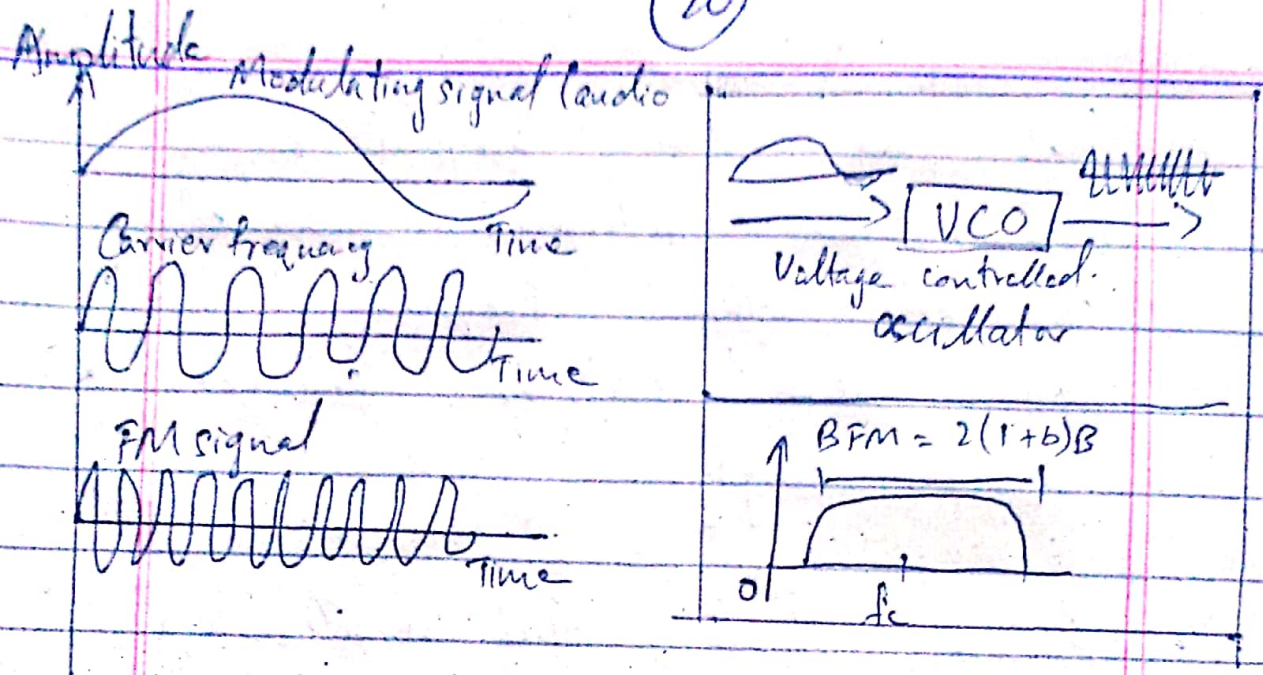 20
Amplitude
Modulating signal (audio
Time
Carrier frequency
Time
FM signal
Time
VCO
Voltage controlled
oscillator
BFM = 2(1+b)B
0
fc